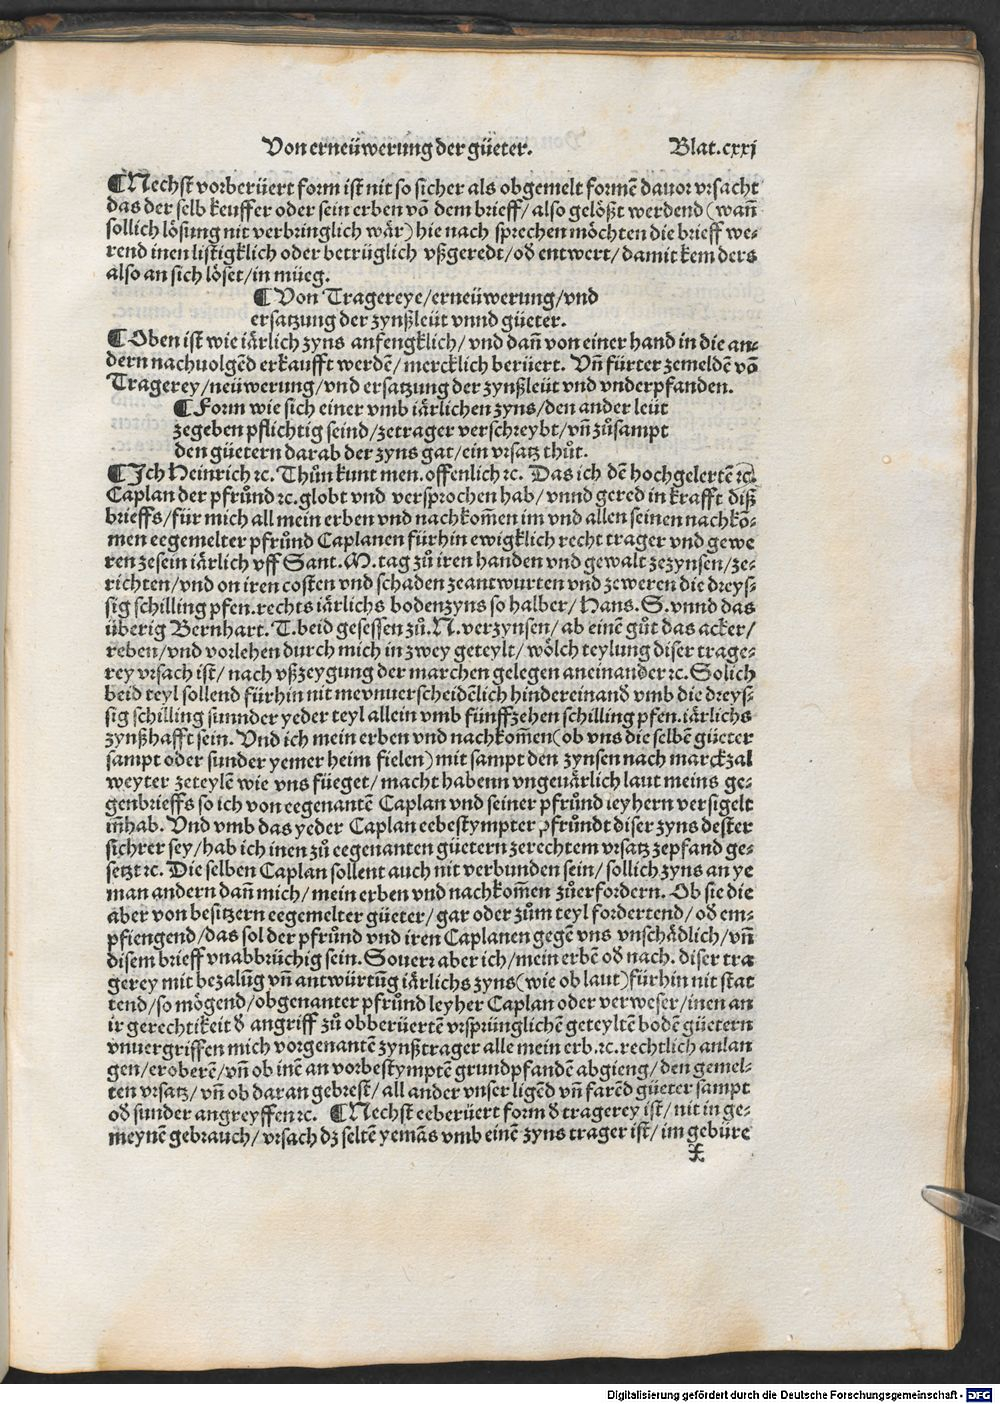 Von erneüwerung der güeter. Blat.cxxj
¶Nechst vorberüert form ist nit so sicher als obgemelt formē dauor vrsacht
das der selb keuffer oder sein erben vō dem brieff/ also gelößt werdend (wañ
sollich lösung nit verbringlich wär) hie nach sprechen möchten die brieff we⸗
rend inen listigklich oder betrüglich vßgeredt/ oď entwert/ damit kem ders
also an sich löset/ in müeg.
¶Von Tragereye/erneüwerung/vnd
ersatzung der zynßleüt vnnd güeter.
¶Oben ist wie iärlich zyns anfengklich/ vnd dañ von einer hand in die an⸗
dern nachuolgēd erkaufft werdē/ mercklich berüert. Vñ fürter zemeldē vō
Tragerey/neüwerung/vnd ersatzung der zynßleüt vnd vnderpfanden.
¶Form wie sich einer vmb iärlichen zyns/den ander leüt
zegeben pflichtig seind/zetrager verschreybt/vñ zůsampt
den güetern darab der zyns gat/ein vrsatz thůt.
¶Ich Heinrich ꝛc. Thůn kunt men. offenlich ꝛc. Das ich dē hochgelertē ꝛc.
Caplan der pfrůnd ꝛc. globt vnd versprochen hab/ vnnd gered in krafft diß
brieffs/für mich all mein erben vnd nachkom̄en im vnd allen seinen nachkō⸗
men eegemelter pfrůnd Caplanen fürhin ewigklich recht trager vnd gewe
ren zesein iärlich vff Sant. M. tag zů iren handen vnd gewalt zezynsen/ze⸗
richten/vnd on iren costen vnd schaden zeantwurten vnd zeweren die dreys⸗
sig schilling pfen.rechts iärlichs bodenzyns so halber/ Hans. S. vnnd das
überig Bernhart. T. beid gesessen zů. N. verzynsen/ ab einē gůt das acker/
reben/vnd vorlehen durch mich in zwey geteylt/ wölch teylung diser trage⸗
rey vrsach ist/ nach vßzeygung der marchen gelegen aneinander ꝛc. Solich
beid teyl sollend fürhin nit me vnuerscheidēlich hindereinanď vmb die dreys⸗
sig schilling sunnder yeder teyl allein vmb fünffzehen schilling pfen. iärlichs
zynßhafft sein. Vnd ich mein erben vnd nachkom̄en (ob vns die selbē güeter
sampt oder sunder yemer heim fielen) mit sampt den zynsen nach marckzal
weyter zeteylē wie vns füeget/ macht habenn vngeuärlich laut meins ge⸗
genbrieffs so ich von eegenantē Caplan vnd seiner pfrůnd leyhern versigelt
iñhab. Vnd vmb das yeder Caplan eebestympter pfrůndt diser zyns dester
sichrer sey/ hab ich inen zů eegenanten güetern zerechtem vrsatz zepfand ge⸗
setzt ꝛc. Die selben Caplan sollent auch nit verbunden sein/ sollich zyns an ye
man andern dañ mich/ mein erben vnd nachkom̄en zůerfordern. Ob sie die
aber von besitzern eegemelter güeter/ gar oder zům teyl fordertend/ oď em⸗
pfiengend/das sol der pfrůnd vnd iren Caplanen gegē vns vnschädlich/vñ
disem brieff vnabbrüchig sein. Souerr aber ich/ mein erbē oď nach. diser tra
gerey mit bezalūg vñ antwürtūg iärlichs zyns (wie ob laut) fürhin nit stat
tend/so mögend/obgenanter pfrůnd leyher Caplan oder verweser/inen an
ir gerechtikeit ď angriff zů obberüertē vrsprünglichē geteyltē bodē güetern
vnuergriffen mich vorgenantē zynßtrager alle mein erb.ꝛc. rechtlich anlan
gen/ eroberē/ vñ ob inē an vorbestymptē grundpfandē abgieng/ den gemel⸗
ten vrsatz/ vñ ob daran gebrest/ all ander vnser ligēd vñ farēd güeter sampt
oď sunder angreyffen ꝛc. ¶Nechst eeberüert form ď tragerey ist/ nit in ge⸗
meynē gebrauch/ vrsach dz seltē yemās vmb einē zyns trager ist/ im gebüre
Digitalisierung gefördert durch die Deutsche Forschungsgemeinschaft - DFG